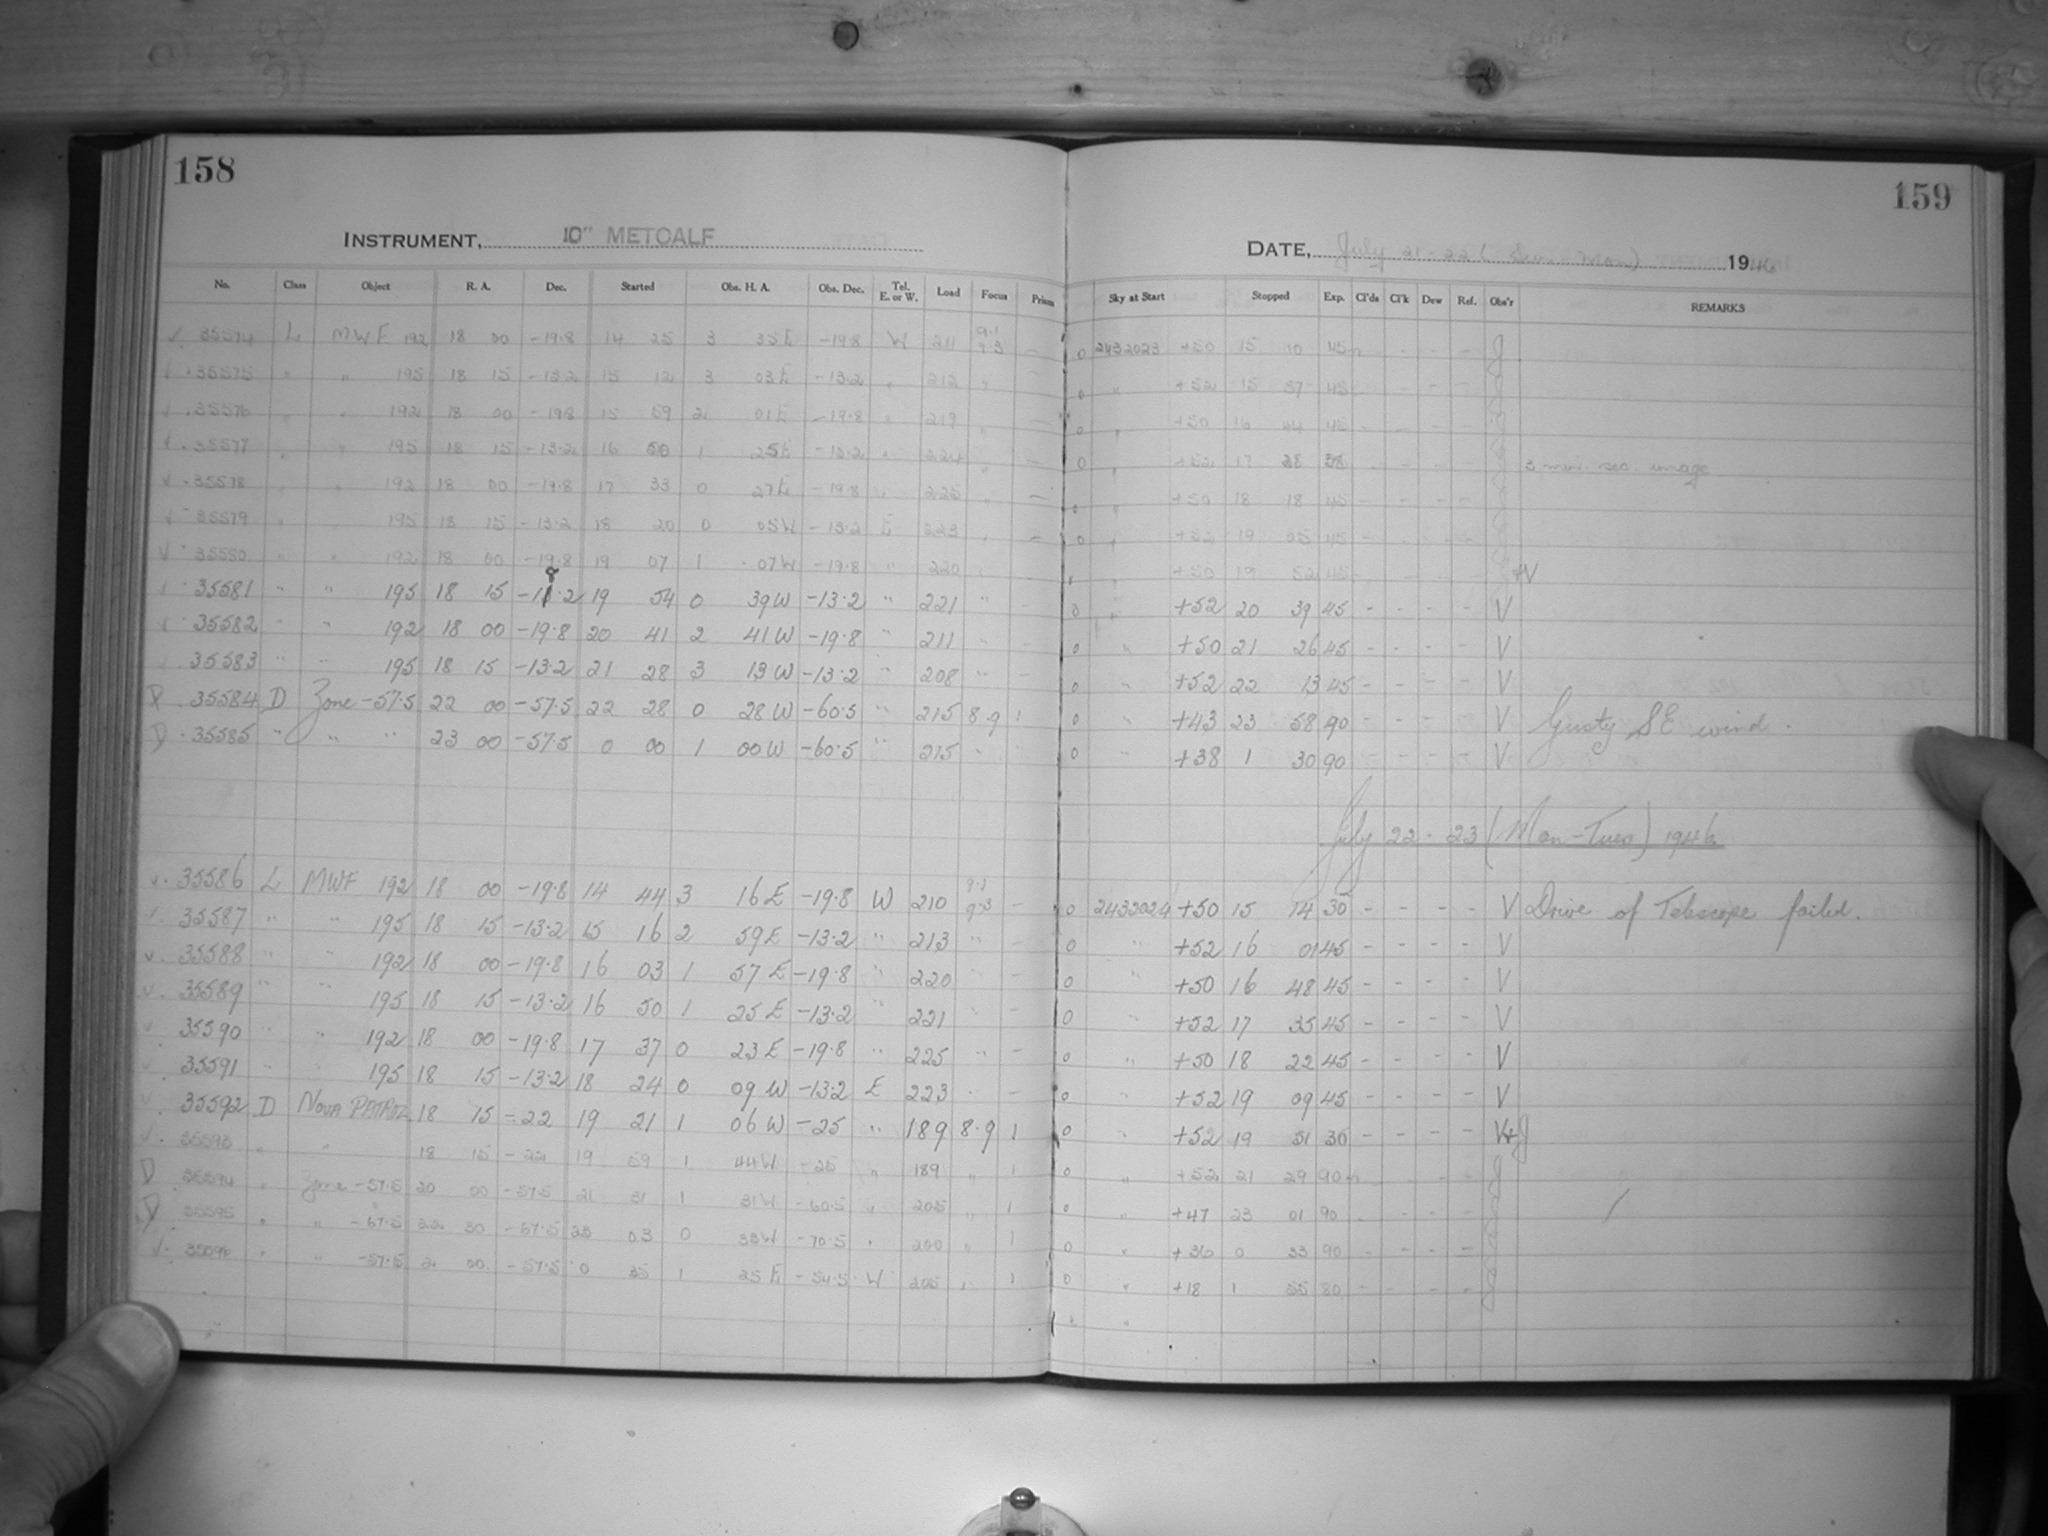 158
INSTRUMENT, 10" METCALF
No. Class Object R. A. Dec. Started Obs. H. A. Obs. Dec. Tel. E. or W. Load Focus Prism
35574 L MWF 192 18 00 -19.8 14 25 3 35E -19.8 W 211 9.1 9.3 -
35575 " " 195 18 15 -13.2 15 12 3 03E -13.2 " 212 " -
35576 " " 192 18 00 -19.8 15 59 2 01E -19.8 " 219 " -
35577 " " 195 18 15 -13.2 16 50 1 25E -13.2 " 224 " -
35578 " " 192 18 00 -19.8 17 33 0 27E -19.8 " 225 " -
35579 " " 195 18 15 -13.2 18 20 0 05W -13.2 E 223 " -
35580 " " 192 18 00 -19.8 19 07 1 07W -19.8 " 220 " -
35581 " " 195 18 15 19 54 0 39W -13.2 " 221 " -
35582 " " 192 18 00 -19.8 20 41 2 41W -19.8 " 211 " -
35583 " " 195 18 15 -13.2 21 28 3 13W -13.2 " 208 " -
35584 D Zone -57.5 22 00 -57.5 22 28 0 28W -60.5 " 215 8.9 1
D 35585 " " " 23 00 -57.5 0 00 1 00W -60.5 " 215 " "
v. 35586 L MWF 192 18 00 -19.8 14 44 3 16E -19.8 W 210 9.1 9.3 -
v. 35587 " " 195 18 15 -13.2 15 16 2 59E -13.2 " 213 " -
v. 35588 " " 192 18 00 -19.8 16 03 1 57E -19.8 " 220 " -
v. 35589 " " 195 18 15 -13.2 16 50 1 25E -13.2 " 221 " -
v. 35590 " " 192 18 00 -19.8 17 37 0 23E -19.8 " 225 " -
35591 " " 195 18 15 -13.2 18 24 0 09W -13.2 E 223 " -
35592 D NOVA 18 15 -22 19 21 1 06W -25 " 189 8.9 1
v. 35593 " " 18 15 -22 19 59 1 44W -25 " 189 " 1
D 35594 " Zone -57.5 20 00 -57.5 21 31 1 31W -60.5 " 205 " 1
D 35595 " " -67.5 22 30 -67.5 23 03 0 33W -70.5 " 200 " 1
v. 35596 " " -57.5 2 00 -57.5 0 35 1 25E -54.5 W 205 " 1
159
DATE, July 21-22 (Sun-Mon) 1946
Sky at Start Stopped Exp. Cl'ds Cl'k Dew Ref. Obs'r REMARKS
0 2432023 +50 15 10 45 - - - - J
0 " +52 15 57 45 - - - - J
0 " +50 16 44 45 - - - - J
0 " +52 17 28 38 - - - - J 3 min. sec. image
0 " +50 18 18 45 - - - - J
0 " +52 19 05 45 - - - - J
" +50 19 52 45 - - - - J+V
0 " +52 20 39 45 - - - - V
0 " +50 21 26 45 - - - - V
0 " +52 22 13 45 - - - - V
0 " +43 23 58 90 - - - - V Gusty SE wind.
0 " +38 1 30 90 - - - - V
July 22-23 (Mon-Tues) 1946
0 2432024 +50 15 14 30 - - - - V Drive of Telescope failed.
0 " +52 16 01 45 - - - - V
0 " +50 16 48 45 - - - - V
0 " +52 17 35 45 - - - - V
0 " +50 18 22 45 - - - - V
0 " +52 19 09 45 - - - - V
0 " +52 19 51 30 - - - - V+J
0 " +52 21 29 90 - - - - J
0 " +47 23 01 90 - - - - J
0 " +36 0 33 90 - - - - J
0 " +18 1 55 80 - - - - J
" "